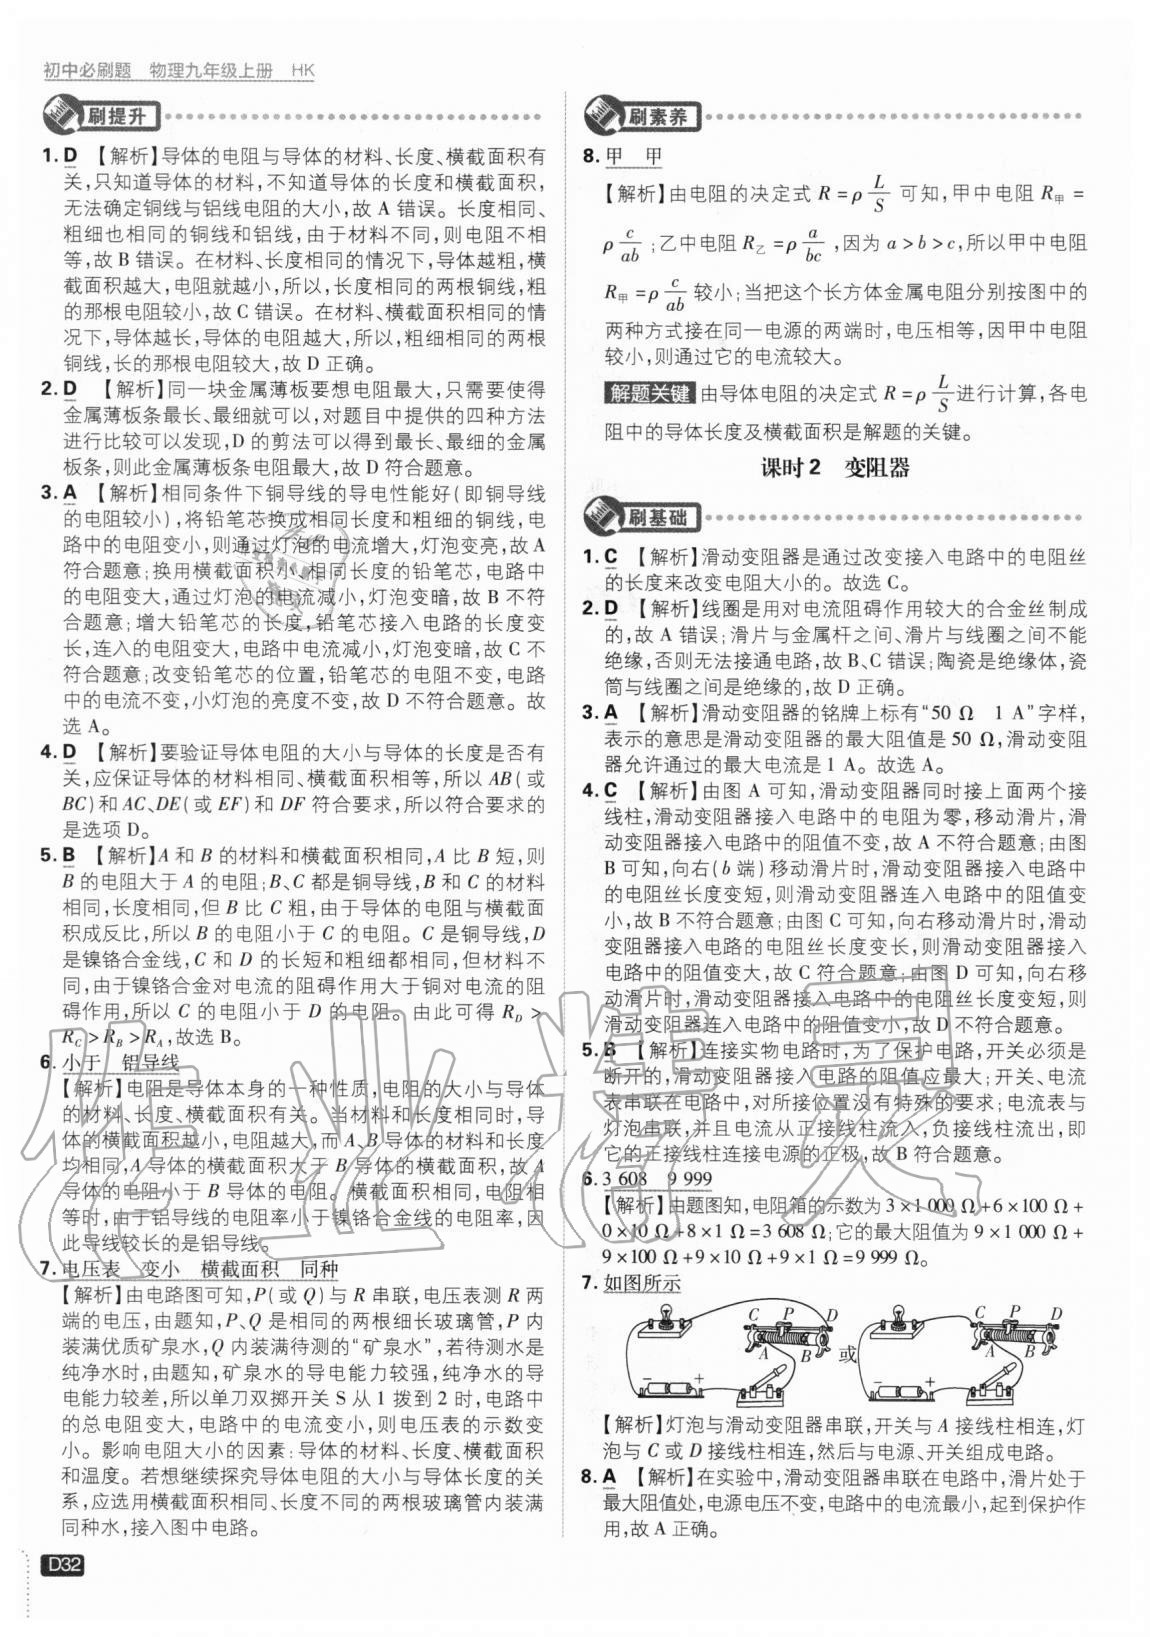 初中必刷题　物理九年级上册　HK
刷提升
1. D 【解析】导体的电阻与导体的材料、长度、横截面积有
关,只知道导体的材料,不知道导体的长度和横截面积,
无法确定铜线与铝线电阻的大小,故 A 错误。长度相同、
粗细也相同的铜线和铝线,由于材料不同,则电阻不相
等,故 B 错误。在材料、长度相同的情况下,导体越粗,横
截面积越大,电阻就越小,所以,长度相同的两根铜线,粗
的那根电阻较小,故 C 错误。在材料、横截面积相同的情
况下,导体越长,导体的电阻越大,所以,粗细相同的两根
铜线,长的那根电阻较大,故 D 正确。
2. D 【解析】同一块金属薄板要想电阻最大,只需要使得
金属薄板条最长、最细就可以,对题目中提供的四种方法
进行比较可以发现,D 的剪法可以得到最长、最细的金属
板条,则此金属薄板条电阻最大,故 D 符合题意。
3. A 【解析】相同条件下铜导线的导电性能好(即铜导线
的电阻较小),将铅笔芯换成相同长度和粗细的铜线,电
路中的电阻变小,则通过灯泡的电流增大,灯泡变亮,故 A
符合题意;换用横截面积小、相同长度的铅笔芯,电路中
的电阻变大,通过灯泡的电流减小,灯泡变暗,故 B 不符
合题意;增大铅笔芯的长度,铅笔芯接入电路的长度变
长,连入的电阻变大,电路中电流减小,灯泡变暗,故 C 不
符合题意;改变铅笔芯的位置,铅笔芯的电阻不变,电路
中的电流不变,小灯泡的亮度不变,故 D 不符合题意。故
选 A。
4. D 【解析】要验证导体电阻的大小与导体的长度是否有
关,应保证导体的材料相同、横截面积相等,所以 AB(或
BC)和 AC、DE(或 EF)和 DF 符合要求,所以符合要求的
是选项 D。
5. B 【解析】A 和 B 的材料和横截面积相同,A 比 B 短,则
B 的电阻大于 A 的电阻;B、C 都是铜导线,B 和 C 的材料
相同,长度相同,但 B 比 C 粗,由于导体的电阻与横截面
积成反比,所以 B 的电阻小于 C 的电阻。C 是铜导线,D
是镍铬合金线,C 和 D 的长短和粗细都相同,但材料不
同,由于镍铬合金对电流的阻碍作用大于铜对电流的阻
碍作用,所以 C 的电阻小于 D 的电阻。由此可得 R_D >
R_C > R_B > R_A,故选 B。
6. 小于　铝导线
【解析】电阻是导体本身的一种性质,电阻的大小与导体
的材料、长度、横截面积有关。当材料和长度相同时,导
体的横截面积越小,电阻越大,而 A、B 导体的材料和长度
均相同,A 导体的横截面积大于 B 导体的横截面积,故 A
导体的电阻小于 B 导体的电阻。横截面积相同,电阻相
等时,由于铝导线的电阻率小于镍铬合金线的电阻率,因
此导线较长的是铝导线。
7. 电压表　变小　横截面积　同种
【解析】由电路图可知,P(或 Q)与 R 串联,电压表测 R 两
端的电压,由题知,P、Q 是相同的两根细长玻璃管,P 内
装满优质矿泉水,Q 内装满待测的“矿泉水”,若待测水是
纯净水时,由题知,矿泉水的导电能力较强,纯净水的导
电能力较差,所以单刀双掷开关 S 从 1 拨到 2 时,电路中
的总电阻变大,电路中的电流变小,则电压表的示数变
小。影响电阻大小的因素:导体的材料、长度、横截面积
和温度。若想继续探究导体电阻的大小与导体长度的关
系,应选用横截面积相同、长度不同的两根玻璃管内装满
同种水,接入图中电路。
D32
刷素养
8. 甲　甲
【解析】由电阻的决定式 R = ρ L/S 可知,甲中电阻 R甲 =
ρ c/ab ;乙中电阻 R乙 = ρ a/bc ,因为 a > b > c,所以甲中电阻
R甲 = ρ c/ab 较小;当把这个长方体金属电阻分别按图中的
两种方式接在同一电源的两端时,电压相等,因甲中电阻
较小,则通过它的电流较大。
解题关键 由导体电阻的决定式 R = ρ L/S 进行计算,各电
阻中的导体长度及横截面积是解题的关键。
课时 2　变阻器
刷基础
1. C 【解析】滑动变阻器是通过改变接入电路中的电阻丝
的长度来改变电阻大小的。故选 C。
2. D 【解析】线圈是用对电流阻碍作用较大的合金丝制成
的,故 A 错误;滑片与金属杆之间、滑片与线圈之间不能
绝缘,否则无法接通电路,故 B、C 错误;陶瓷是绝缘体,瓷
筒与线圈之间是绝缘的,故 D 正确。
3. A 【解析】滑动变阻器的铭牌上标有“50 Ω　1 A”字样,
表示的意思是滑动变阻器的最大阻值是 50 Ω,滑动变阻
器允许通过的最大电流是 1 A。故选 A。
4. C 【解析】由图 A 可知,滑动变阻器同时接上面两个接
线柱,滑动变阻器接入电路中的电阻为零,移动滑片,滑
动变阻器接入电路中的阻值不变,故 A 不符合题意;由图
B 可知,向右(b 端)移动滑片时,滑动变阻器接入电路中
的电阻丝长度变短,则滑动变阻器连入电路中的阻值变
小,故 B 不符合题意;由图 C 可知,向右移动滑片时,滑动
变阻器接入电路的电阻丝长度变长,则滑动变阻器接入
电路中的阻值变大,故 C 符合题意;由图 D 可知,向右移
动滑片时,滑动变阻器接入电路中的电阻丝长度变短,则
滑动变阻器连入电路中的阻值变小,故 D 不符合题意。
5. B 【解析】连接实物电路时,为了保护电路,开关必须是
断开的,滑动变阻器接入电路的阻值应最大;开关、电流
表串联在电路中,对所接位置没有特殊的要求;电流表与
灯泡串联,并且电流从正接线柱流入,负接线柱流出,即
它的正接线柱连接电源的正极,故 B 符合题意。
6. 3 608　9 999
【解析】由题图知,电阻箱的示数为 3×1 000 Ω+6×100 Ω+
0×10 Ω+8×1 Ω=3 608 Ω;它的最大阻值为 9×1 000 Ω+
9×100 Ω+9×10 Ω+9×1 Ω=9 999 Ω。
7. 如图所示
C P D A B − + 或 C P D A B − +
【解析】灯泡与滑动变阻器串联,开关与 A 接线柱相连,灯
泡与 C 或 D 接线柱相连,然后与电源、开关组成电路。
8. A 【解析】在实验中,滑动变阻器串联在电路中,滑片处于
最大阻值处,电源电压不变,电路中的电流最小,起到保护作
用,故 A 正确。
作业精灵